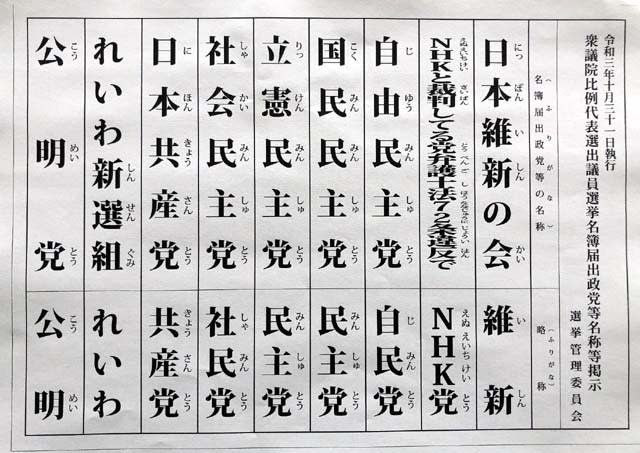 令和三年十月三十一日執行
衆議院比例代表選出議員選挙名簿届出政党等名称等掲示
選挙管理委員会
名簿届出政党等の名称
(ふりがな)
略称
(ふりがな)
日本維新の会
にっぽん いしん かい
維新
いしん
NHKと裁判してる党弁護士法72条違反で
えぬえいちけい さいばん とう べんごしほう ななじゅうにじょういはん
NHK党
えぬえいちけいとう
自由民主党
じゆうみんしゅとう
自民党
じみんとう
国民民主党
こくみんみんしゅとう
民主党
みんしゅとう
立憲民主党
りっけんみんしゅとう
民主党
みんしゅとう
社会民主党
しゃかいみんしゅとう
社民党
しゃみんとう
日本共産党
にほんきょうさんとう
共産党
きょうさんとう
れいわ新選組
しんせんぐみ
れいわ
公明党
こうめいとう
公明
こうめい